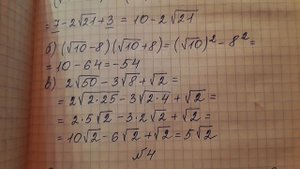 = 7 - 2√21 + 3 = 10 - 2√21
б) (√10 - 8)(√10 + 8) = (√10)² - 8² =
= 10 - 64 = -54
в) 2√50 - 3√8 + √2 =
= 2√2·25 - 3√2·4 + √2 =
= 2·5√2 - 3·2√2 + √2 =
= 10√2 - 6√2 + √2 = 5√2
№4